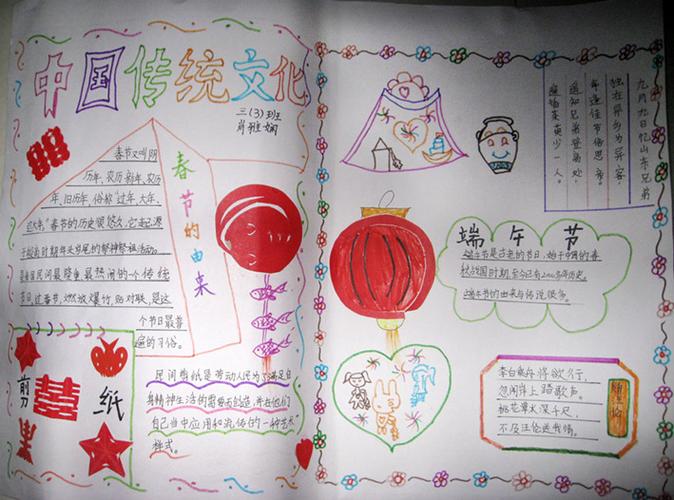 中国传统文化
三(3)班
春节的由来
春节又叫阴
历年、农历新年、农历
年、旧历年,俗称"过年、大年、
过大年。"春节的历史很悠久,它起源
于殷商时期年头岁尾的祭神祭祖活动。
是我国民间最隆重最热闹的一个传统
节日。过春节,燃放爆竹,贴对联,是这
个节日最普
遍的习俗。
剪纸
囍
民间剪纸是劳动人民为了满足自
身精神生活的需要而创造,并在他们
自己当中应用和流传的一种艺术
样式。
九月九日忆山东兄弟
独在异乡为异客,
每逢佳节倍思亲。
遥知兄弟登高处,
遍插茱萸少一人。
端午节
端午节是古老的节日,始于中国的春
秋战国时期,至今已有2000多年历史。
端午节的由来与传说很多。
李白乘舟将欲行,
忽闻岸上踏歌声。
桃花潭水深千尺,
不及汪伦送我情。